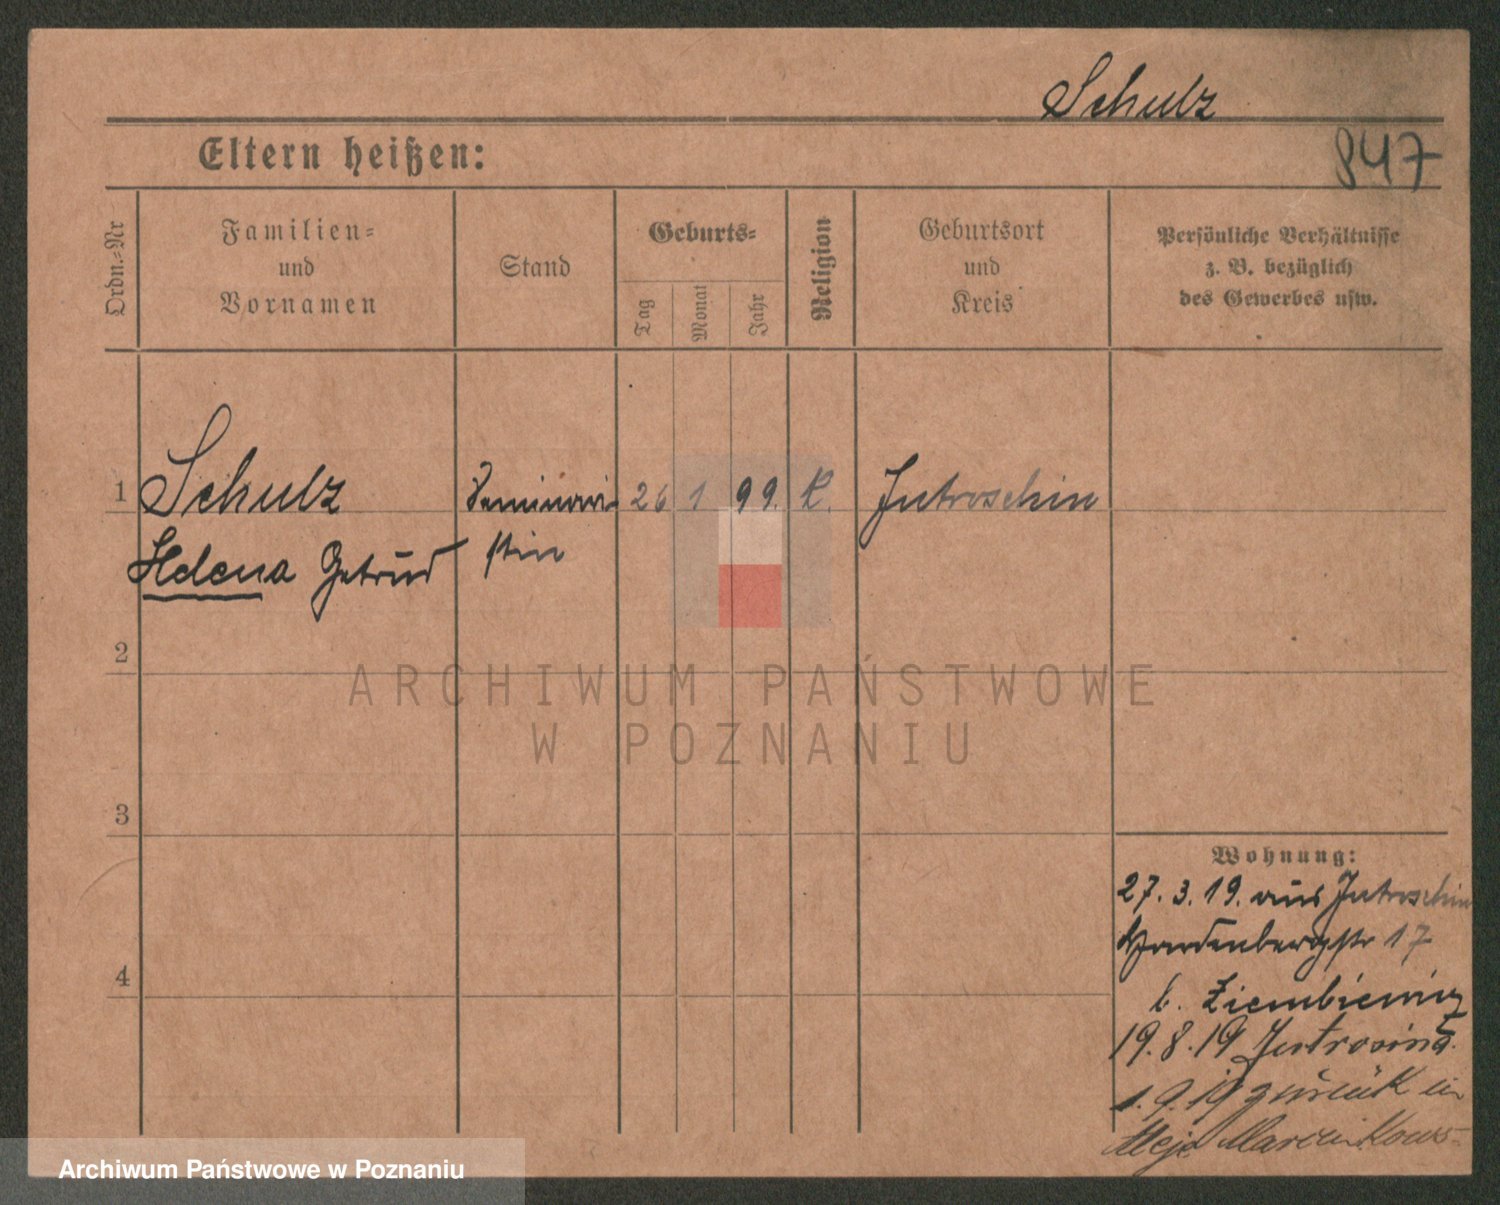 Schulz
847
Eltern heißen:
Ordn.-Nr
Familien-
und
Vornamen
Stand
Geburts-
Tag
Monat
Jahr
Religion
Geburtsort
und
Kreis
Persönliche Verhältnisse
z. B. bezüglich
des Gewerbes usw.
1 Schulz Seminari- 26 1 99. K. Jutroschin
Helena Getrud stin
2
ARCHIWUM PAŃSTWOWE
W POZNANIU
3
Wohnung:
27. 3. 19. aus Jutroschin
Hardenbergstr 17
4
b. Ziembiewicz
19. 8. 19 Jutrosina.
1. 9. 19 zurück in
Aleje
Archiwum Państwowe w Poznaniu